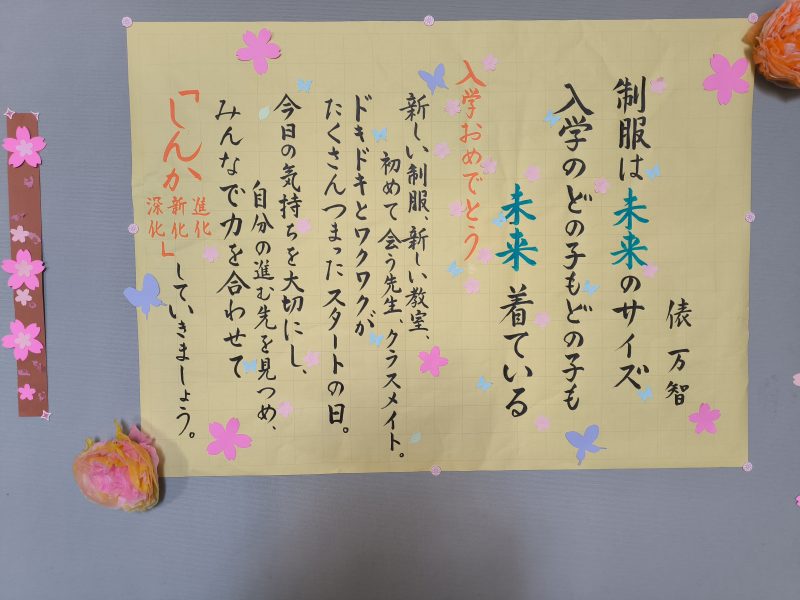 俵 万智
制服は未来のサイズ
入学のどの子もどの子も
未来着ている
入学おめでとう
新しい制服、新しい教室、
初めて会う先生、クラスメイト。
ドキドキとワクワクが
たくさんつまったスタートの日。
今日の気持ちを大切にし、
自分の進む先を見つめ、
みんなで力を合わせて
「しんか
進化
新化
深化
」していきましょう。